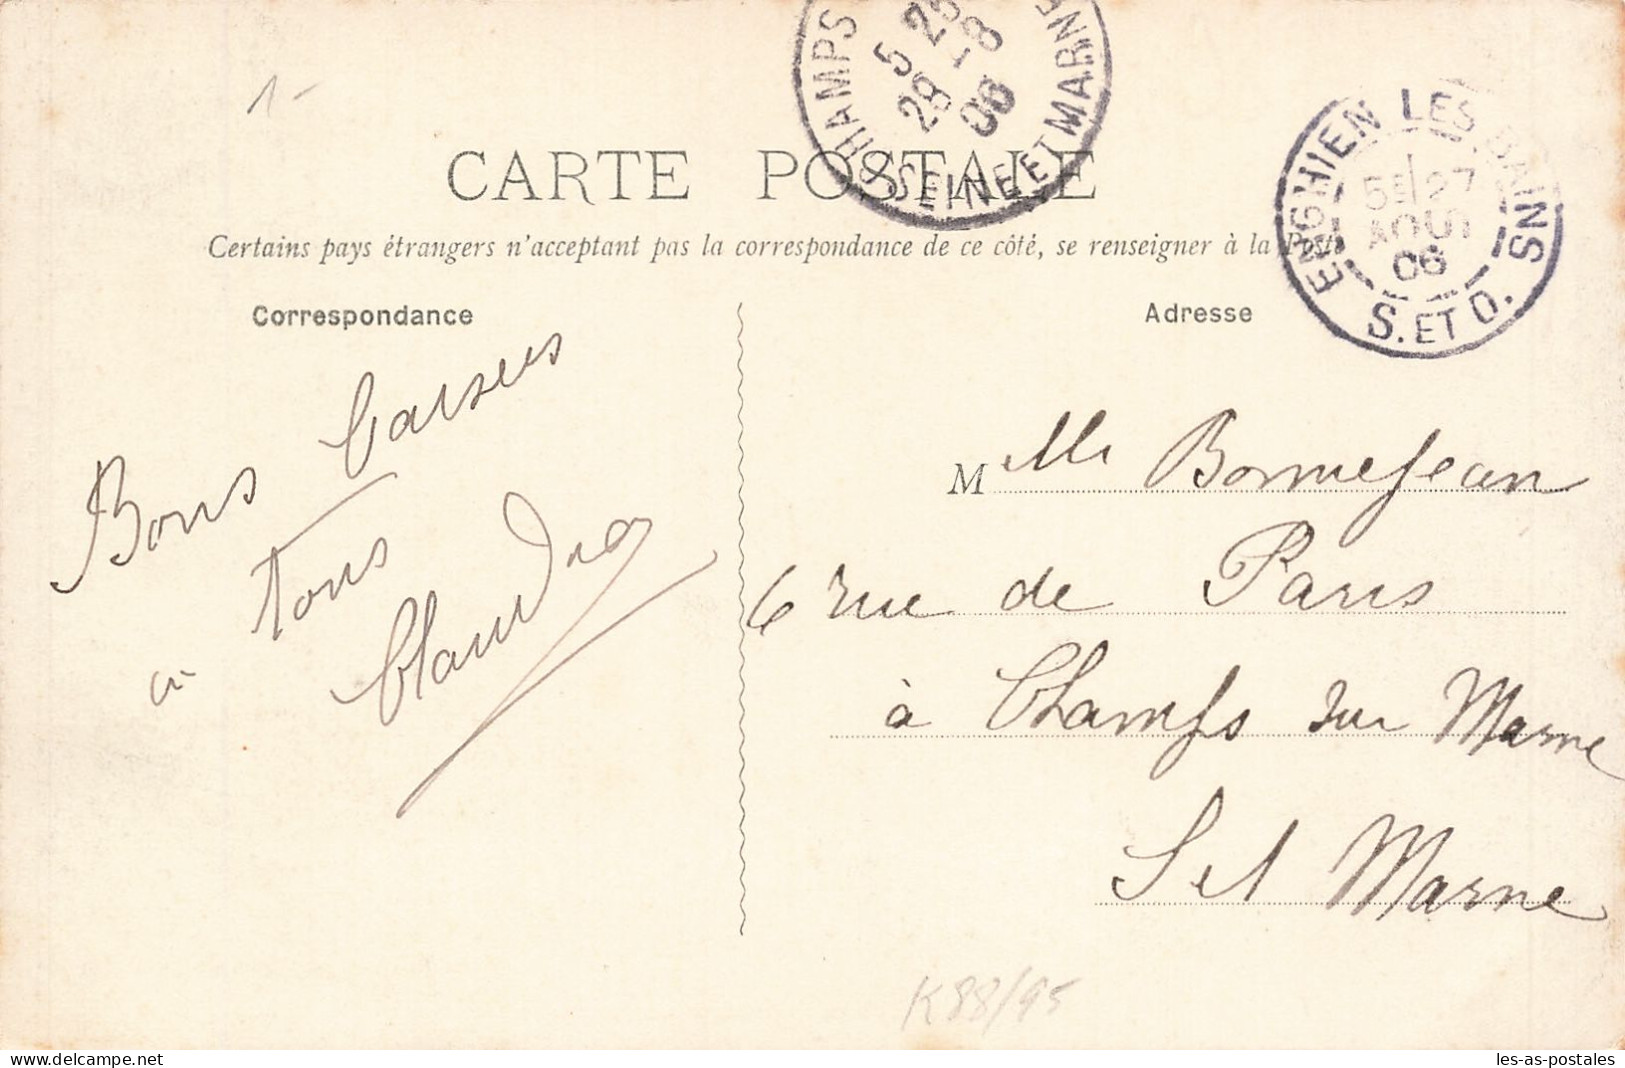 1-
CHAMPS SEINE ET MARNE
5 25
28 -8
06
ENGHIEN LES BAINS S. ET O.
5E/27
AOUT
06
CARTE POSTALE
Certains pays étrangers n'acceptant pas la correspondance de ce côté, se renseigner à la Poste
Correspondance
Adresse
Bons Baisers
a Tous
Claudra
Mlle Bonnejean
6 rue de Paris
à Champs sur Marne
S et Marne
K88/95
www.delcampe.net
les-as-postales